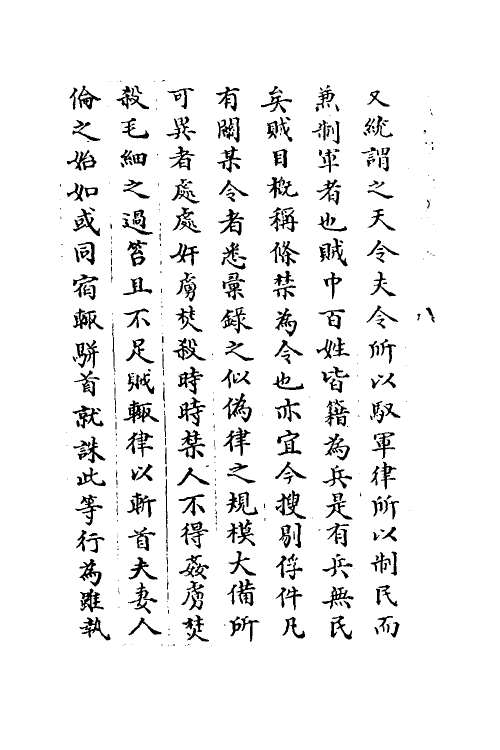 又統謂之天令夫令所以馭軍律所以制民而
兼制軍者也賊中百姓皆籍為兵是有兵無民
矣賊目概稱條禁為令也亦宜今搜剔俘件凡
有關某令者悉彙錄之似偽律之規模大備所
可異者處處奸虜焚殺時時禁人不得姦虜焚
殺毛細之過笞且不足賊輒律以斬首夫妻人
倫之始如或同宿輒駢首就誅此等行為雖執